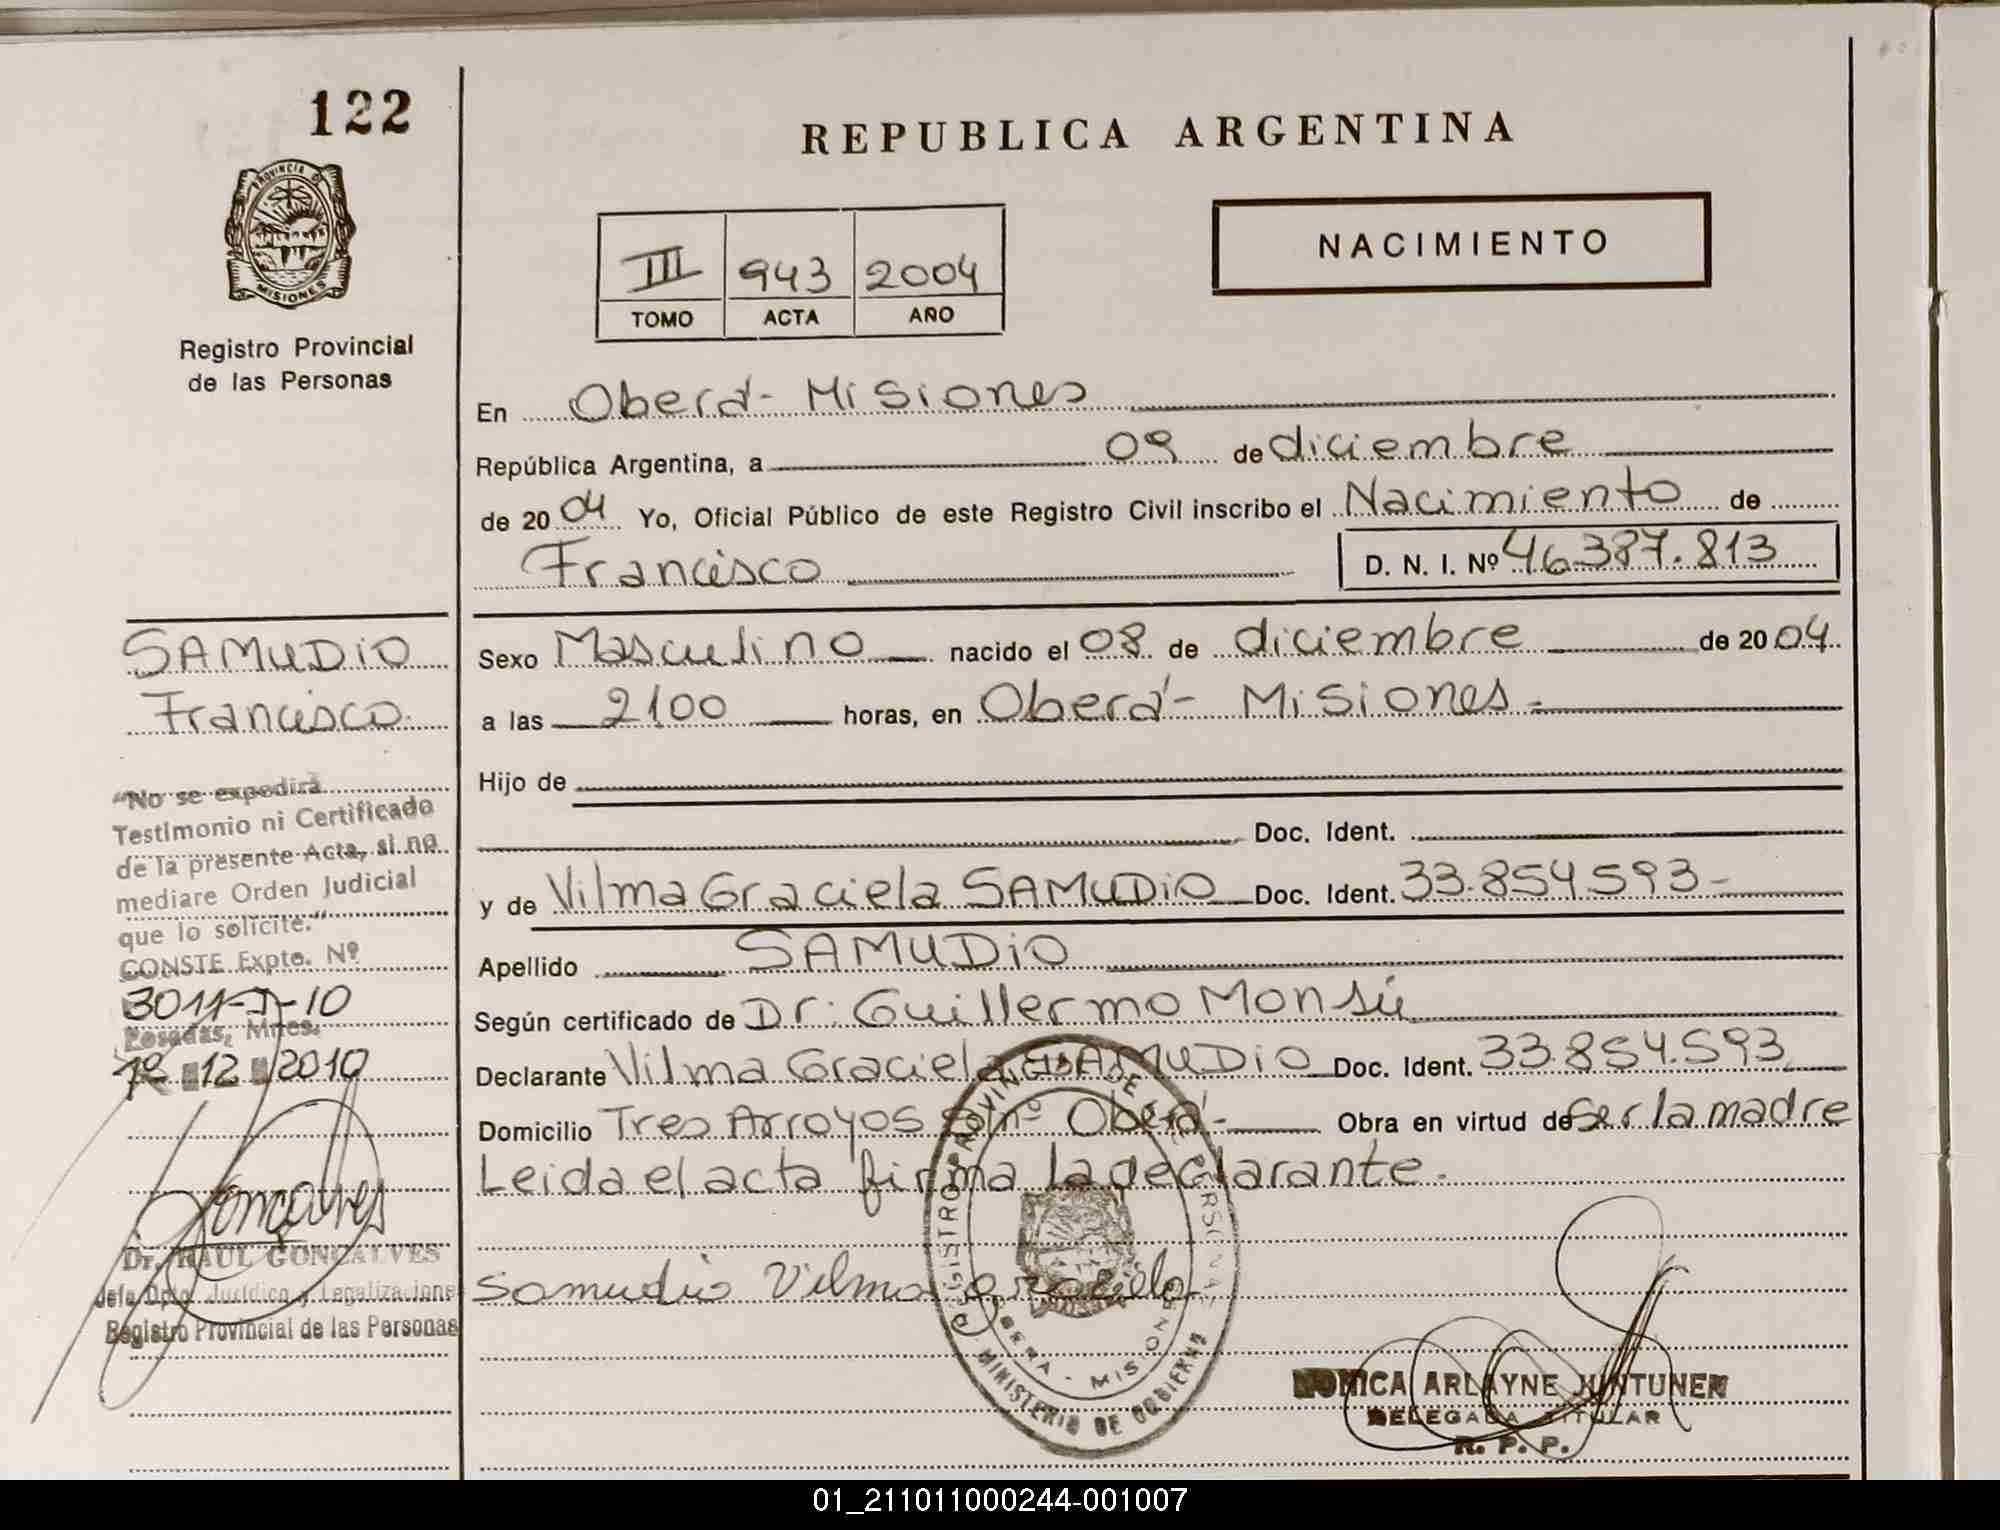 122
REPUBLICA ARGENTINA
PROVINCIA DE
MISIONES
Registro Provincial
de las Personas
III 943 2004
TOMO ACTA AÑO
NACIMIENTO
En Oberá - Misiones
República Argentina, a 09 de diciembre
de 2004 Yo, Oficial Público de este Registro Civil inscribo el Nacimiento de
Francisco D. N. I. Nº 46.387.813
SAMUDIO
Francisco.
"No se expedirá
Testimonio ni Certificado
de la presente Acta, si no
mediare Orden Judicial
que lo solicite."
CONSTE Expte. Nº
3011-I-10
Posadas, Mnes.
12 2010
Gonçalves
Dr. RAUL GONCALVES
Jefe Dpto. Jurídico y Legalizaciones
Registro Provincial de las Personas
Sexo Masculino nacido el 08 de diciembre de 2004.
a las 2100 horas, en Oberá - Misiones.
Hijo de
Doc. Ident.
y de Vilma Graciela SAMUDIO Doc. Ident. 33.854.593-
Apellido SAMUDIO
Según certificado de Dr: Guillermo Monsú
Declarante Vilma Graciela SAMUDIO Doc. Ident. 33.854.593
Domicilio Tres Arroyos S/nº Oberá- Obra en virtud de Ser la madre
Leida el acta firma la declarante.
Samudio Vilma graciela
REGISTRO PROVINCIAL DE LAS PERSONAS
OBERA - MISIONES
MINISTERIO DE GOBIERNO
MONICA ARLAYNE JUNTUNEN
DELEGADA TITULAR
R. P. P.
01_211011000244-001007